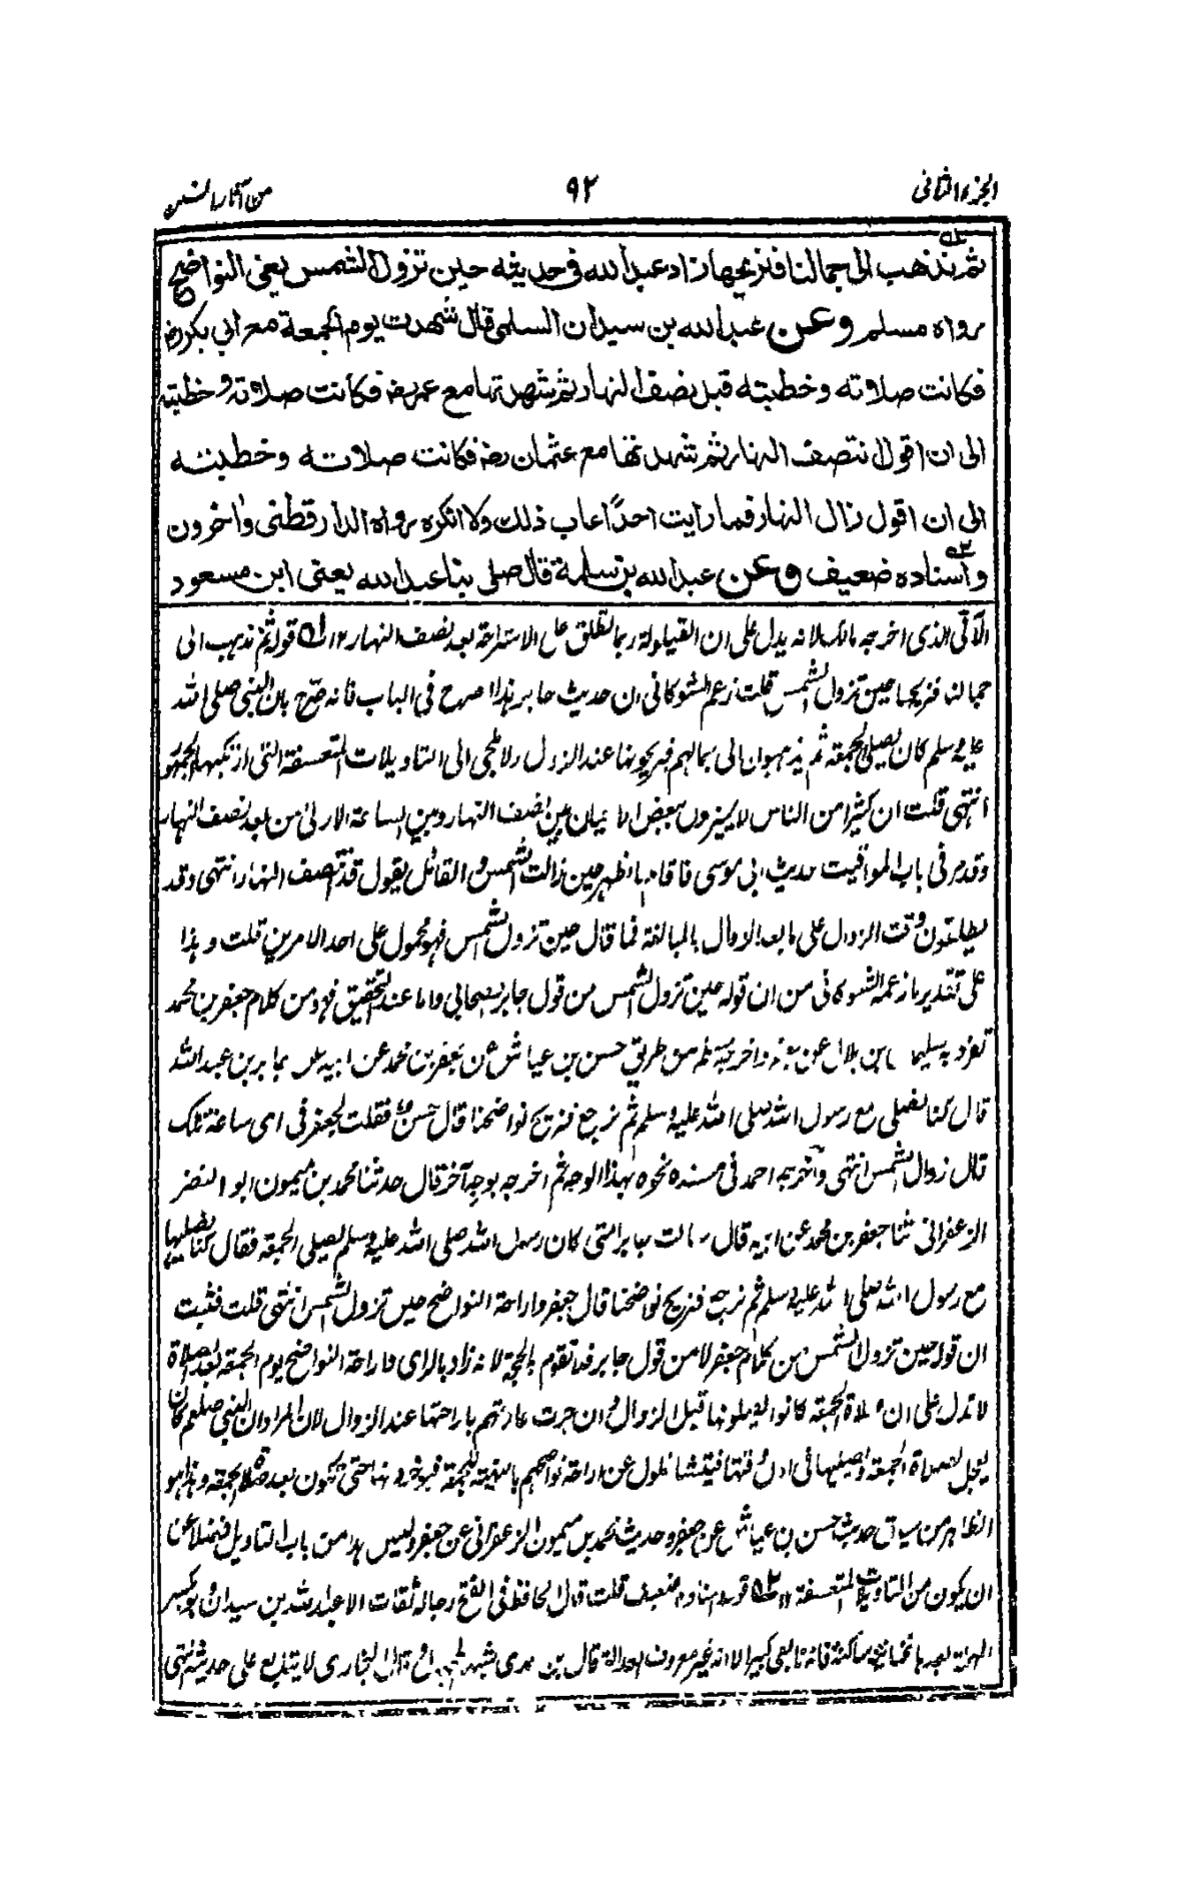 الجزء الثانى
٩٢
من آثار السنن
ثم نذهب الى جمالنا فنريحها زاد عبد الله فى حديثه حين تزول الشمس يعنى النواضح
رواه مسلم وعن عبد الله بن سيدان السلمى قال شهدت يوم الجمعة مع ابي بكر رض
فكانت صلاته وخطبته قبل نصف النهار ثم شهدتها مع عمر رض فكانت صلاته وخطبته
الى ان اقول انتصف النهار ثم شهدتها مع عثمان رض فكانت صلاته وخطبته
الى ان اقول زال النهار فما رايت احدًا عاب ذلك ولا انكره رواه الدارقطنى واٰخرون
واسناده ضعيف وعن عبد الله بن سلمة قال صلى بنا عبد الله يعنى ابن مسعود
الآتى الذى اخرجه مالك لانه يدل على ان القيلولة ربما تطلق على الاستراحة بعد نصف النهار ١٢ قوله ثم نذهب الى
جمالنا فنريحها حين تزول الشمس قلت زعم الشوكانى ان حديث جابر هذا صرح فى الباب فانه صرح بان النبى صلى الله
عليه وسلم كان يصلى الجمعة ثم يذهبون الى جمالهم فيريحونها عند الزوال ولا ملجى الى التاويلات المتعسفة التى ارتكبها الجمهور
انتهى قلت ان كثيرا من الناس لا يميزون بعض الاحيان بين نصف النهار وبين الساعة الاولى من بعد نصف النهار
وقد مر فى باب المواقيت حديث ابى موسى فاقام بالظهر حين زالت الشمس والقائل يقول قد انتصف النهار انتهى وقد
يطلقون وقت الزوال على ما بعد الزوال بالمبالغة فما قال حين تزول الشمس فهو محمول على احد الامرين قلت وهذا
على تقدير ما زعمه الشوكانى من ان قوله حين تزول الشمس من قول جابر الصحابى واما عند التحقيق فهو من كلام جعفر بن محمد
تفرد به سليمان بن بلال عن جعفر واخرجه مسلم من طريق حسن بن عياش عن جعفر بن محمد عن ابيه عن جابر بن عبد الله
قال كنا نصلى مع رسول الله صلى الله عليه وسلم ثم نرجع فنريح نواضحنا قال حسن فقلت لجعفر فى اى ساعة تلك
قال زوال الشمس انتهى واخرجه احمد فى مسنده نحوه بهذا الوجه ثم اخرجه بوجه آخر قال حدثنا محمد بن ميمون ابو النضر
الزعفرانى ثنا جعفر بن محمد عن ابيه قال سالت جابرا متى كان رسول الله صلى الله عليه وسلم يصلى الجمعة فقال كنا نصليها
مع رسول الله صلى الله عليه وسلم ثم نرجع فنريح نواضحنا قال جعفر واراحة النواضح حين تزول الشمس انتهى قلت فثبت
ان قوله حين تزول الشمس من كلام جعفر لا من قول جابر فلا تقوم به الحجة لانه زاد بالراى واراحة النواضح يوم الجمعة بعد الصلاة
لا تدل على ان صلاة الجمعة كانوا يصلونها قبل الزوال وان جرت عادتهم باراحتها عند الزوال لان المراد ان النبى صلعم كان
يعجل لصلاة الجمعة ويصليها فى اول وقتها فيتشاغلون عن اراحة نواضحهم بالتهيئة للجمعة فيؤخرونها حتى يكون بعد صلاة الجمعة وهذا هو
الظاهر من سياق حديث حسن بن عياش عن جعفر وحديث محمد بن ميمون الزعفرانى عن جعفر وليس هذا من باب التاويل فضلا عن
ان يكون من التاويلات المتعسفة ١٢ قوله اسناده ضعيف قلت قال الحافظ فى الفتح رجاله ثقات الا عبد الله بن سيدان وهو بكسر
المهملة بعدها تحتانية ساكنة فانه تابعى كبير الا انه غير معروف العدالة قال ابن عدى شبه المجهول وقال البخارى لا يتابع على حديثه انتهى